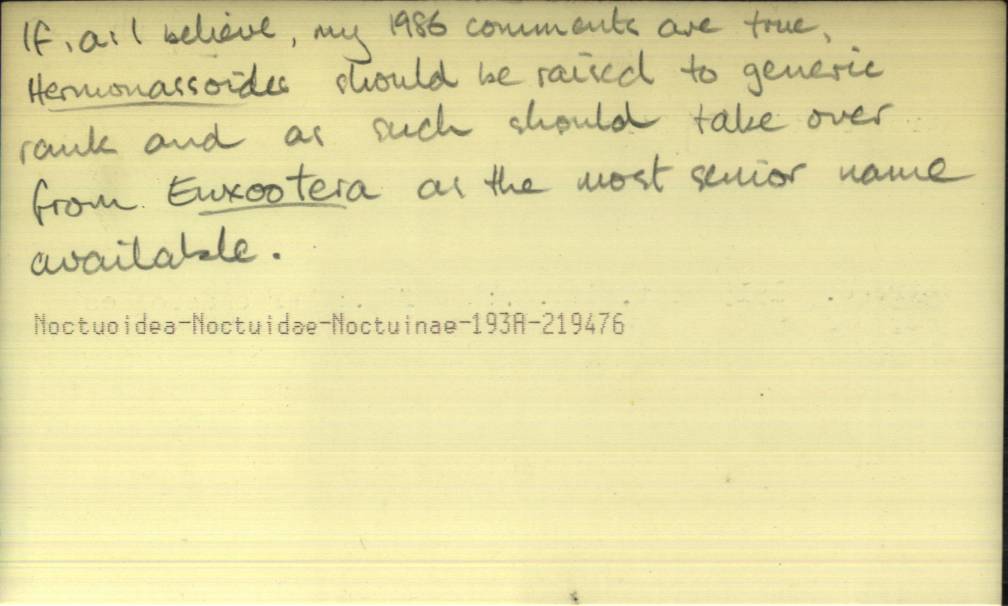 If, as I believe, my 1986 comments are true,
Hermonassoides should be raised to generic
rank and as such should take over
from Euxootera as the most senior name
available.
Noctuoidea-Noctuidae-Noctuinae-193A-219476